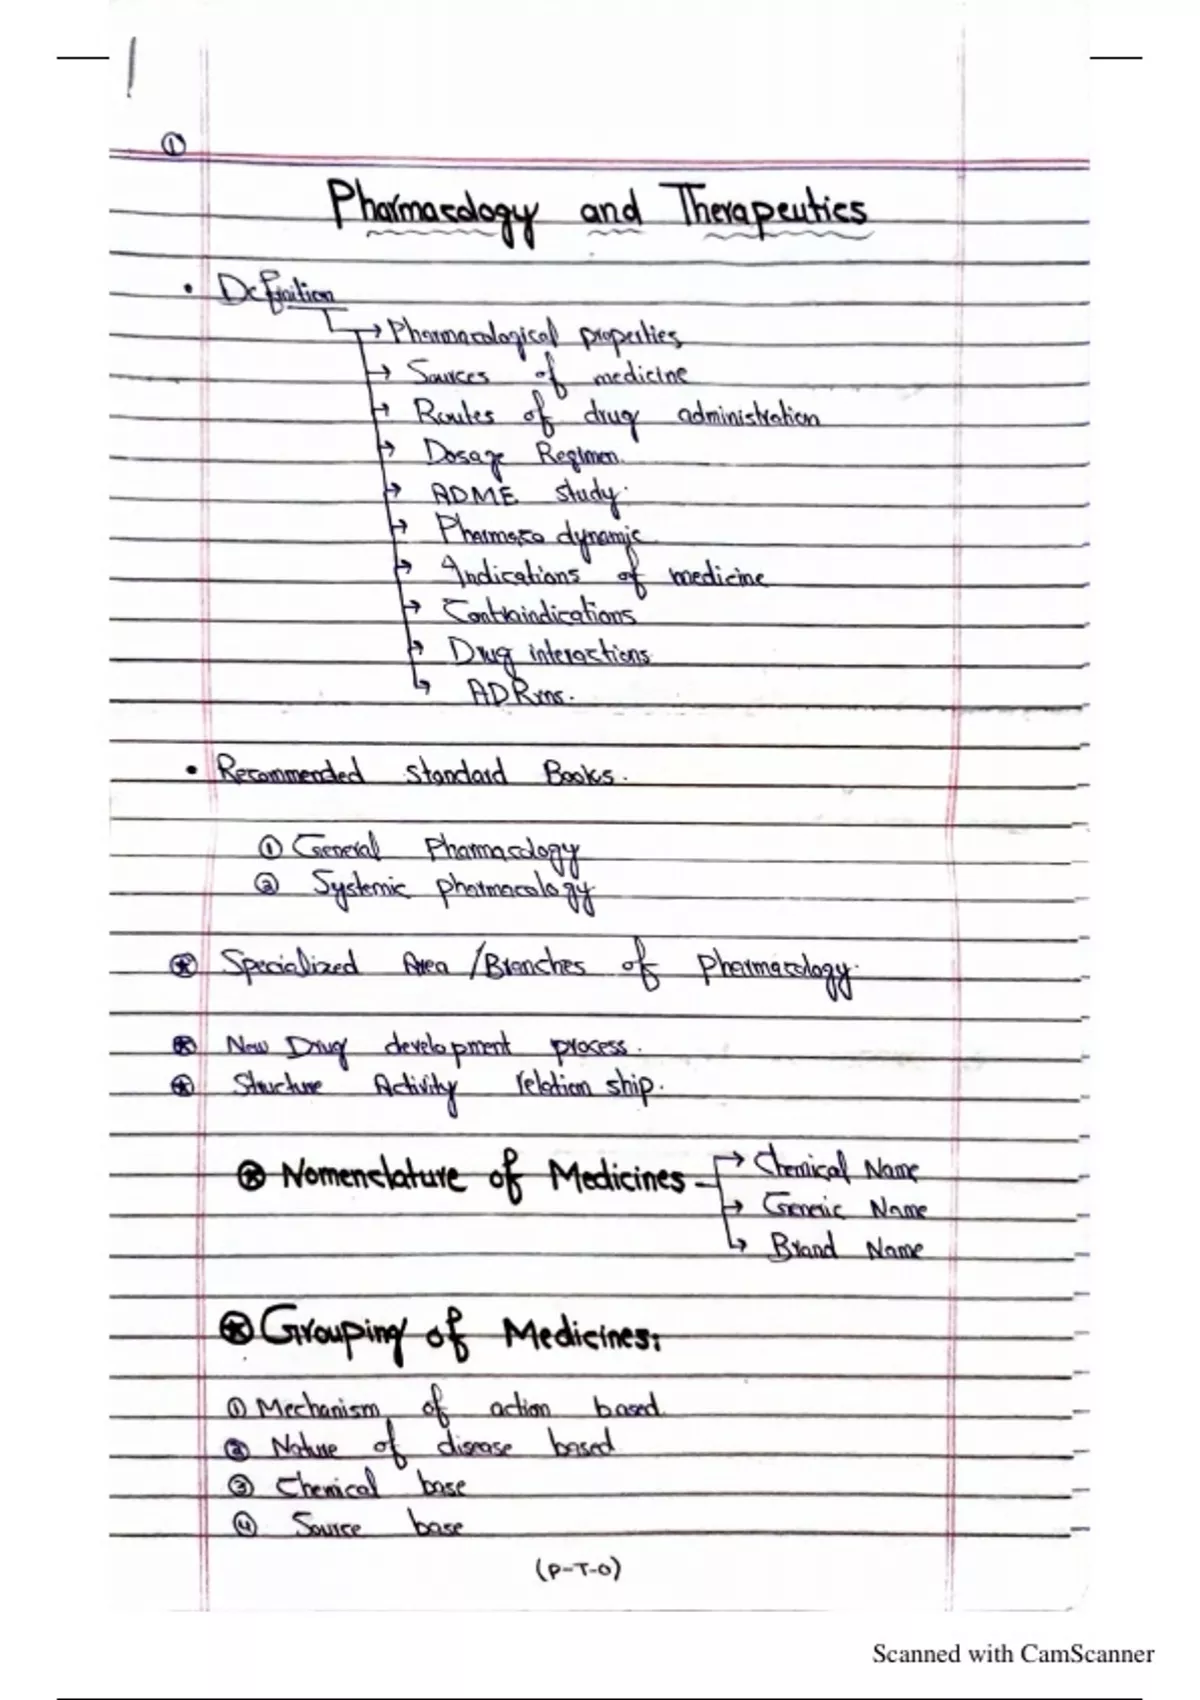 1
①
Pharmacology and Therapeutics
• Definition
→ Pharmacological properties
→ Sources of medicine
→ Routes of drug administration
→ Dosage Regimen.
→ ADME study.
→ Pharmaco dynamic
→ Indications of medicine
→ Contraindications
→ Drug interactions
→ ADRxns.
• Recommended standard Books.
① General Pharmacology
② Systemic pharmacology
⍟ Specialized Area / Branches of Pharmacology.
⍟ New Drug development process.
⍟ Structure Activity relation ship.
⍟ Nomenclature of Medicines → Chemical Name
→ Generic Name
→ Brand Name
⍟ Grouping of Medicines:
① Mechanism of action based
② Nature of disease based
③ Chemical base
④ Source base
(P-T-O)
Scanned with CamScanner